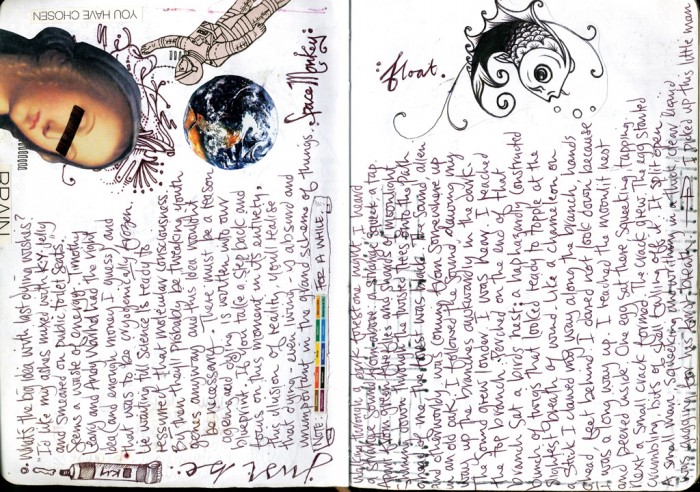 YOU HAVE CHOSEN
BRAIN
What's the big idea with last dyin wishes?
"I'd like my ashes mixed with K.Y. Jelly
and smeared on public toilet seats."
Seems a waste of energy. Timothy
Leary and Andy Warhol had the right
idea (and enough money I guess) and
that was to be cryogenically frozen.
Lie waiting till science is ready to
resurrect that molecular consciousness.
By then they'll probably be tweaking youth
genes anyway and this idea wouldn't
be necessary. There must be a reason
ageing and dying is written into our
blueprint. If you take a step back and
focus on this moment in its entirety,
this illusion of reality, you'll realise
that dying, even living - is absurd and
unimportant in the grand scheme of things. Space Monkey.
KY
NOTE:
FOR A WHILE.
Just be:
:float.
Walking through a forest one night I heard
a strange sound from above: a a tap.
Apart from green needles and shards of moonlight
shining down through the twisted trees onto the path
in front of me the forest was black. The sound alien
and otherworldly was coming from somewhere up
in an old oak. I followed the sound, clawing my
way up the branches awkwardly in the dark.
The sound grew louder. I was near. I reached
the top branch. Perched on the end of that
branch sat a birds nest; a haphazardly constructed
bunch of twigs that looked ready to topple at the
slightest breath of wind. Like a chameleon on
a stick I clawed my way along the branch, hands
ahead, feet behind. I dared not look down because
I was a long way up. I reached the moonlit nest
and peered inside. One egg sat there squeaking. Tapping.
Next a small crack formed. The crack grew. The egg started
crumbling, bits of shell falling off it. It split open.
A small man, squeaking, in a thick clear liquid
was I picked up this little man